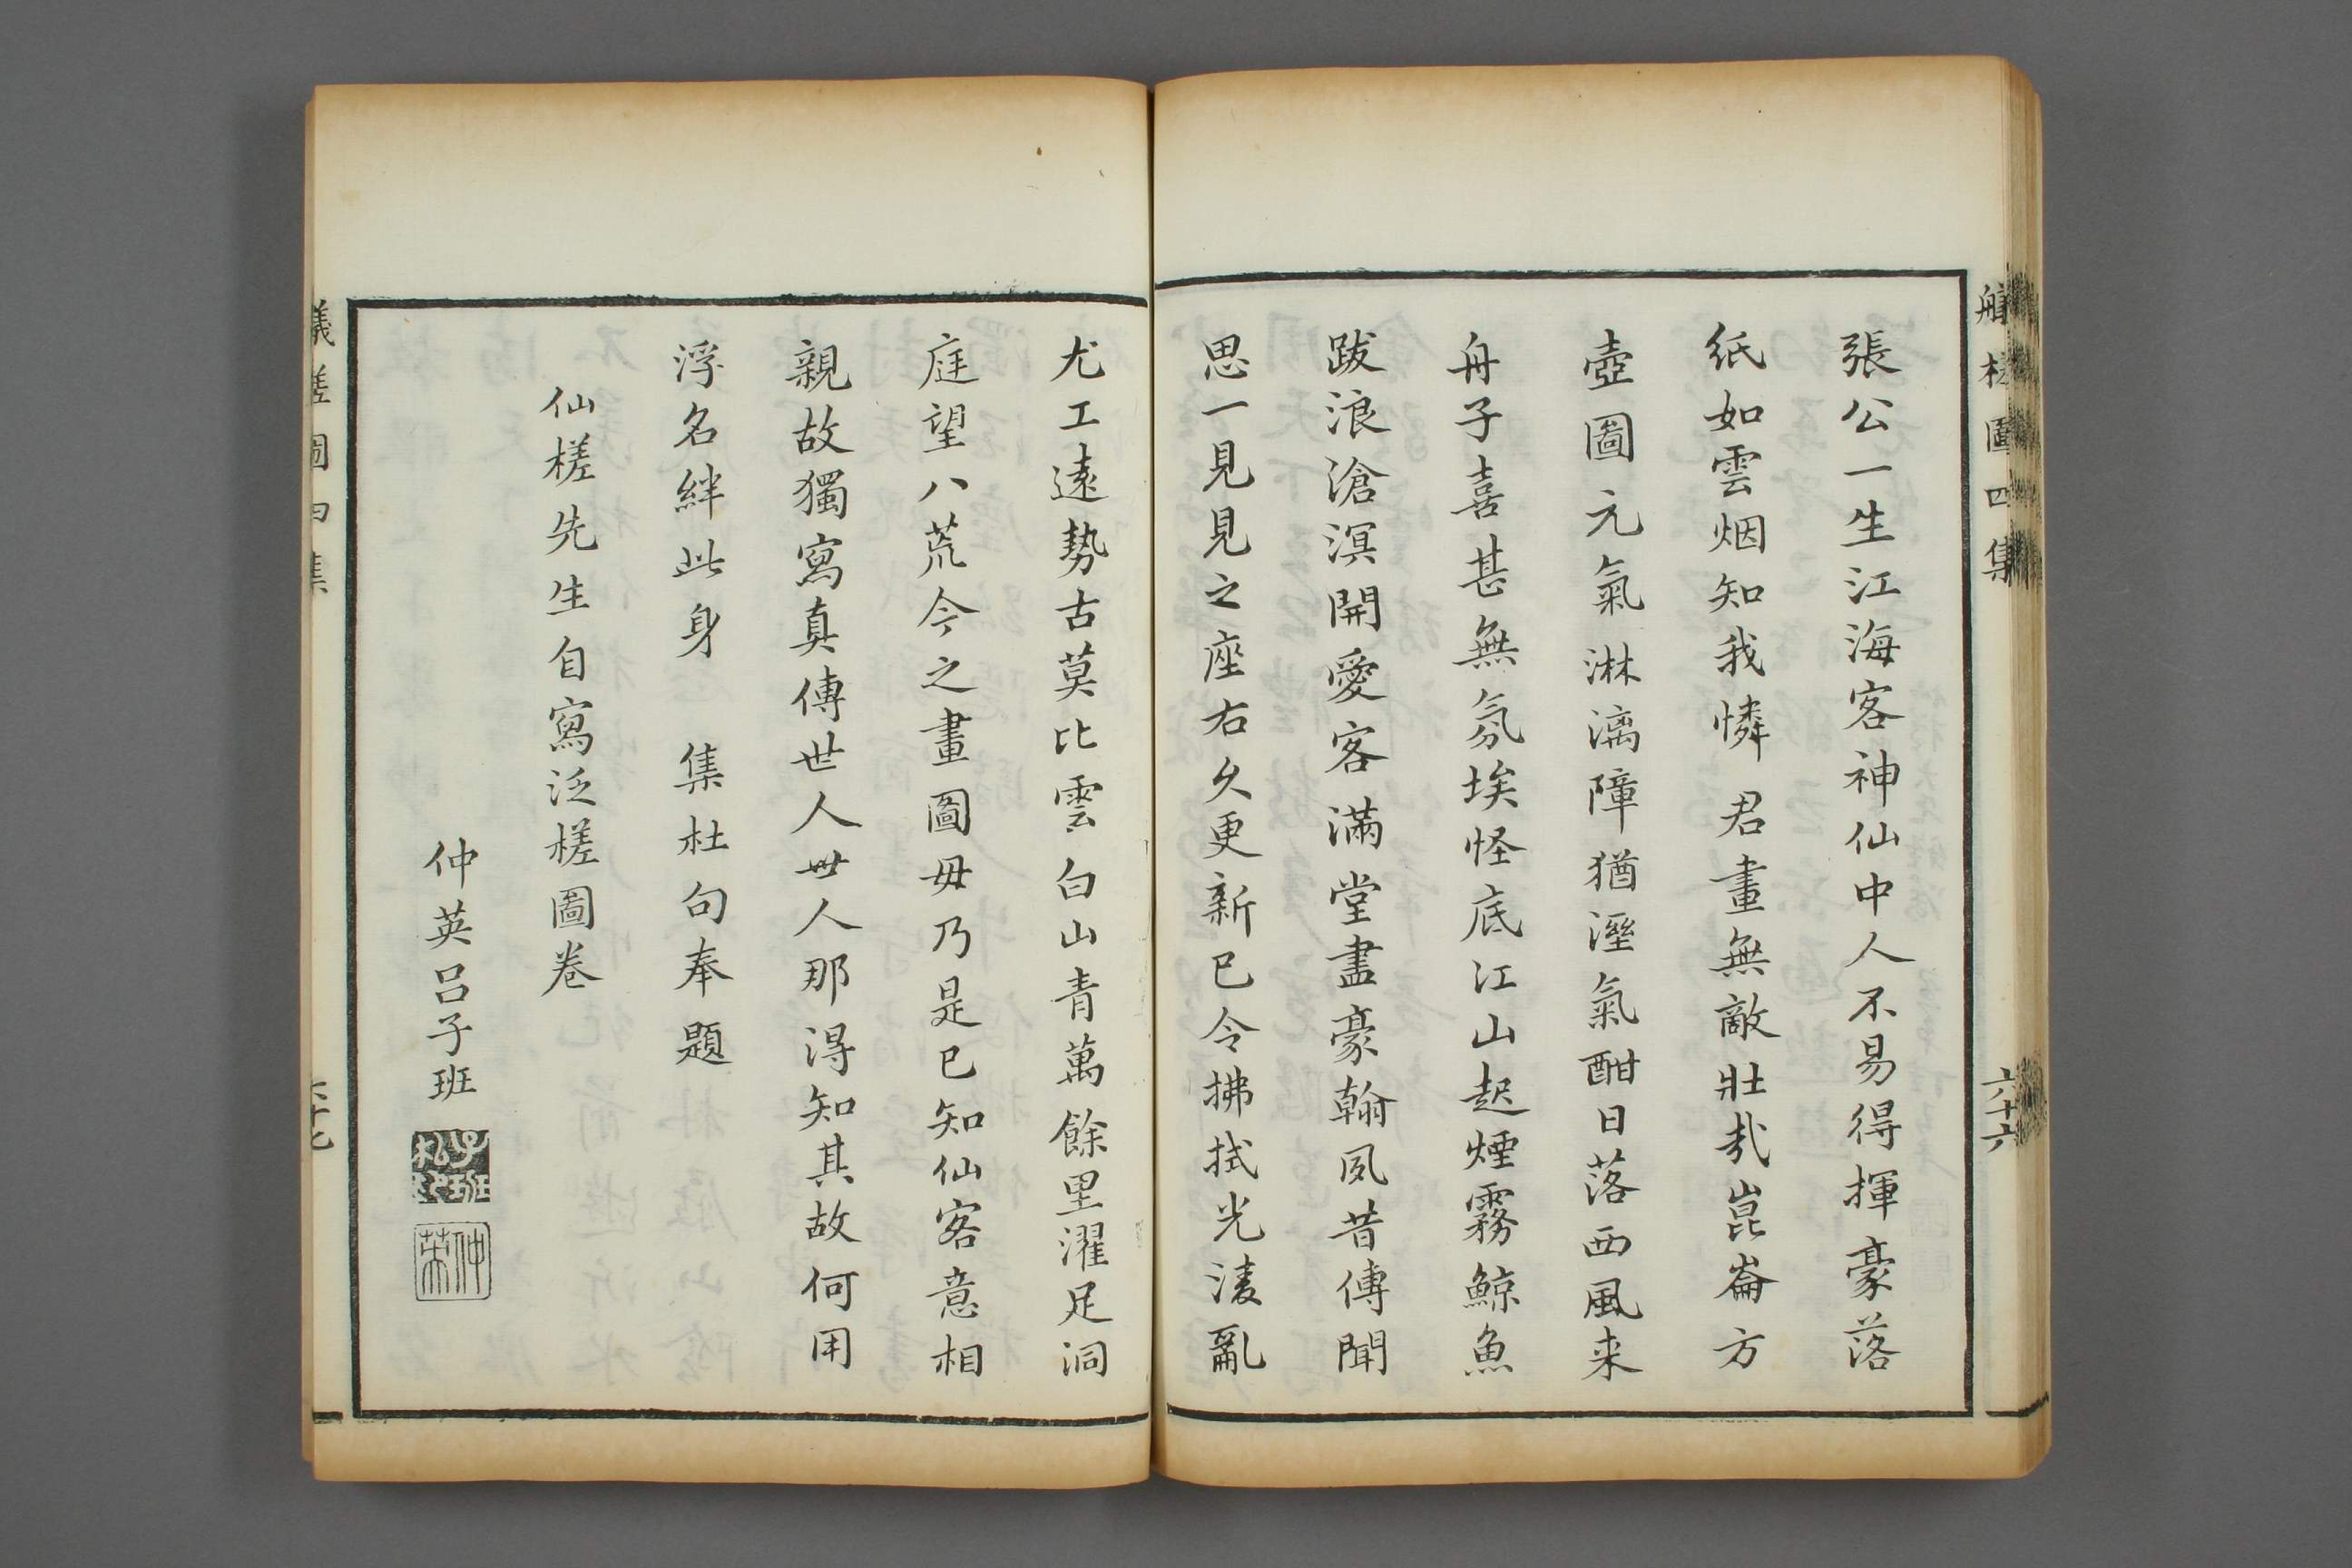 張公一生江海客神仙中人不易得揮豪落
紙如雲烟知我憐君畫無敵壯哉崑崙方
壺圖元氣淋漓障猶溼氣酣日落西風来
舟子喜甚無氛埃怪底江山起煙霧鯨魚
跋浪滄溟開愛客滿堂盡豪翰夙昔傳聞
思一見見之座右久更新已令拂拭光淩亂
尤工遠勢古莫比雲白山青萬餘里濯足洞
庭望八荒今之畫圖毋乃是已知仙客意相
親故獨寫真傳世人世人那得知其故何用
浮名絆此身 集杜句奉題
仙槎先生自寫泛槎圖卷
仲英呂子班
子班
仲英
槎圖四集
六十六
槎圖四集
六十七